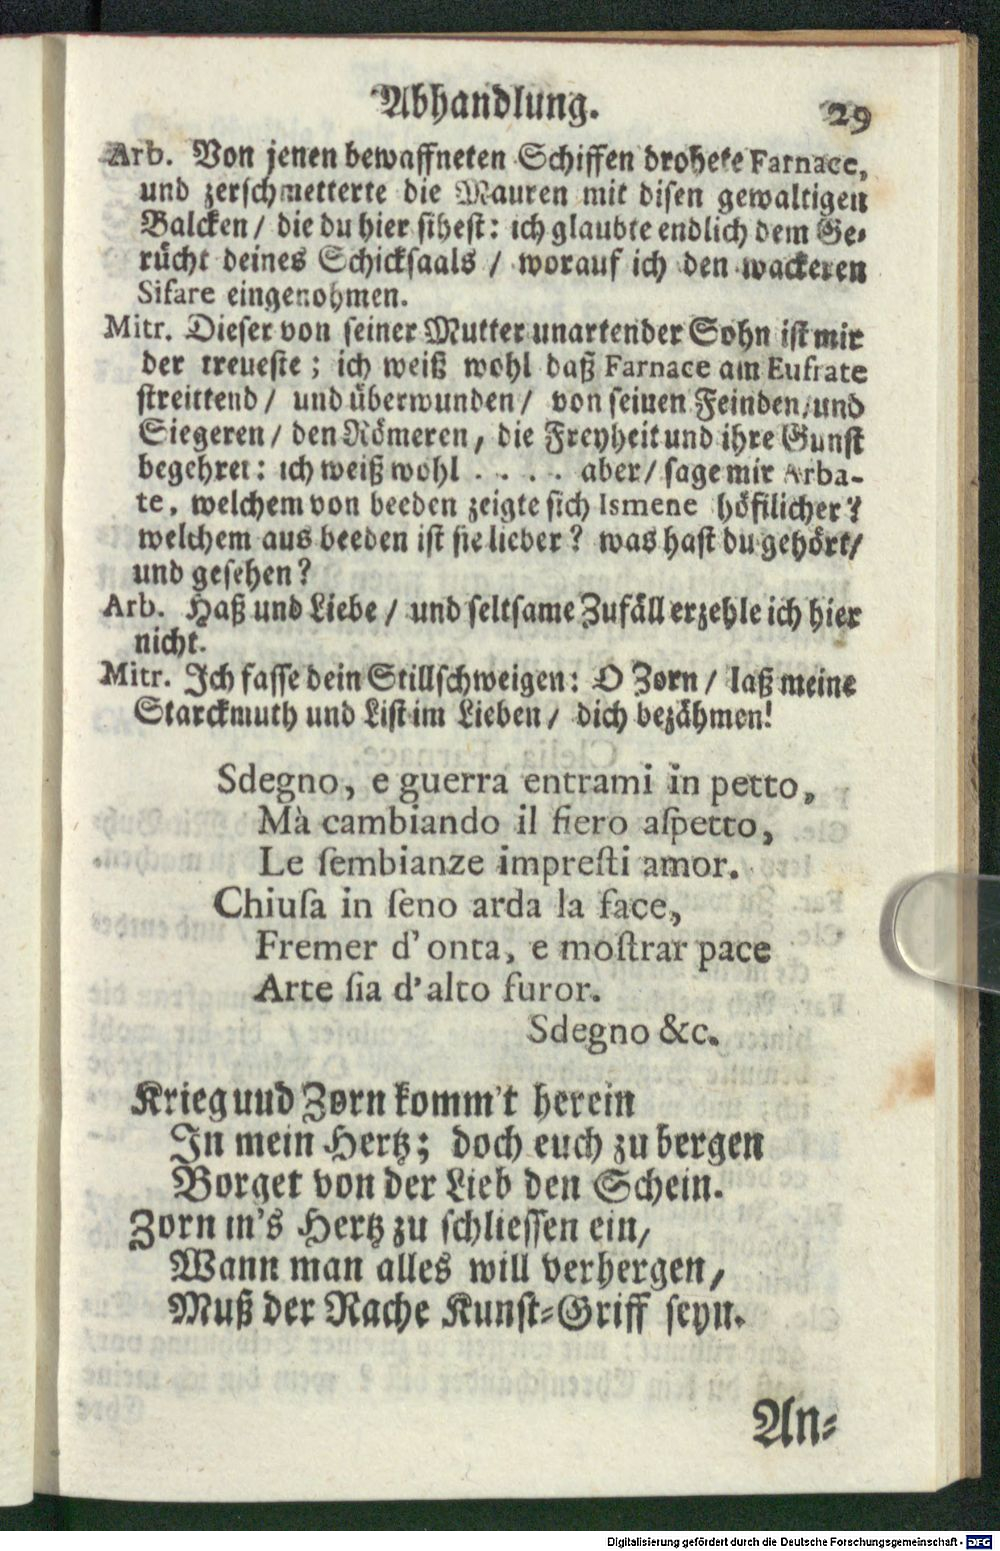 Abhandlung. 29
Arb. Von jenen bewaffneten Schiffen drohete Farnace,
und zerschmetterte die Mauren mit disen gewaltigen
Balcken / die du hier sihest: ich glaubte endlich dem Ge-
rücht deines Schicksaals / worauf ich den wackeren
Sifare eingenohmen.
Mitr. Dieser von seiner Mutter unartender Sohn ist mir
der treueste; ich weiß wohl daß Farnace am Eufrate
streittend / und überwunden / von seinen Feinden / und
Siegeren / den Römeren, die Freyheit und ihre Gunst
begehret: ich weiß wohl . . . . aber / sage mir Arba-
te, welchem von beeden zeigte sich Ismene höfilicher?
welchem aus beeden ist sie lieber? was hast du gehört /
und gesehen?
Arb. Haß und Liebe / und seltsame Zufäll erzehle ich hier
nicht.
Mitr. Ich fasse dein Stillschweigen: O Zorn / laß meine
Starckmuth und List im Lieben / dich bezähmen!
Sdegno, e guerra entrami in petto,
Mà cambiando il fiero aſpetto,
Le ſembianze impreſti amor.
Chiuſa in ſeno arda la face,
Fremer d'onta, e moſtrar pace
Arte ſia d'alto furor.
Sdegno &c.
Krieg und Zorn komm't herein
In mein Hertz; doch euch zu bergen
Borget von der Lieb den Schein.
Zorn in's Hertz zu schliessen ein /
Wann man alles will verhergen /
Muß der Rache Kunst-Griff seyn.
An-
Digitalisierung gefördert durch die Deutsche Forschungsgemeinschaft - DFG